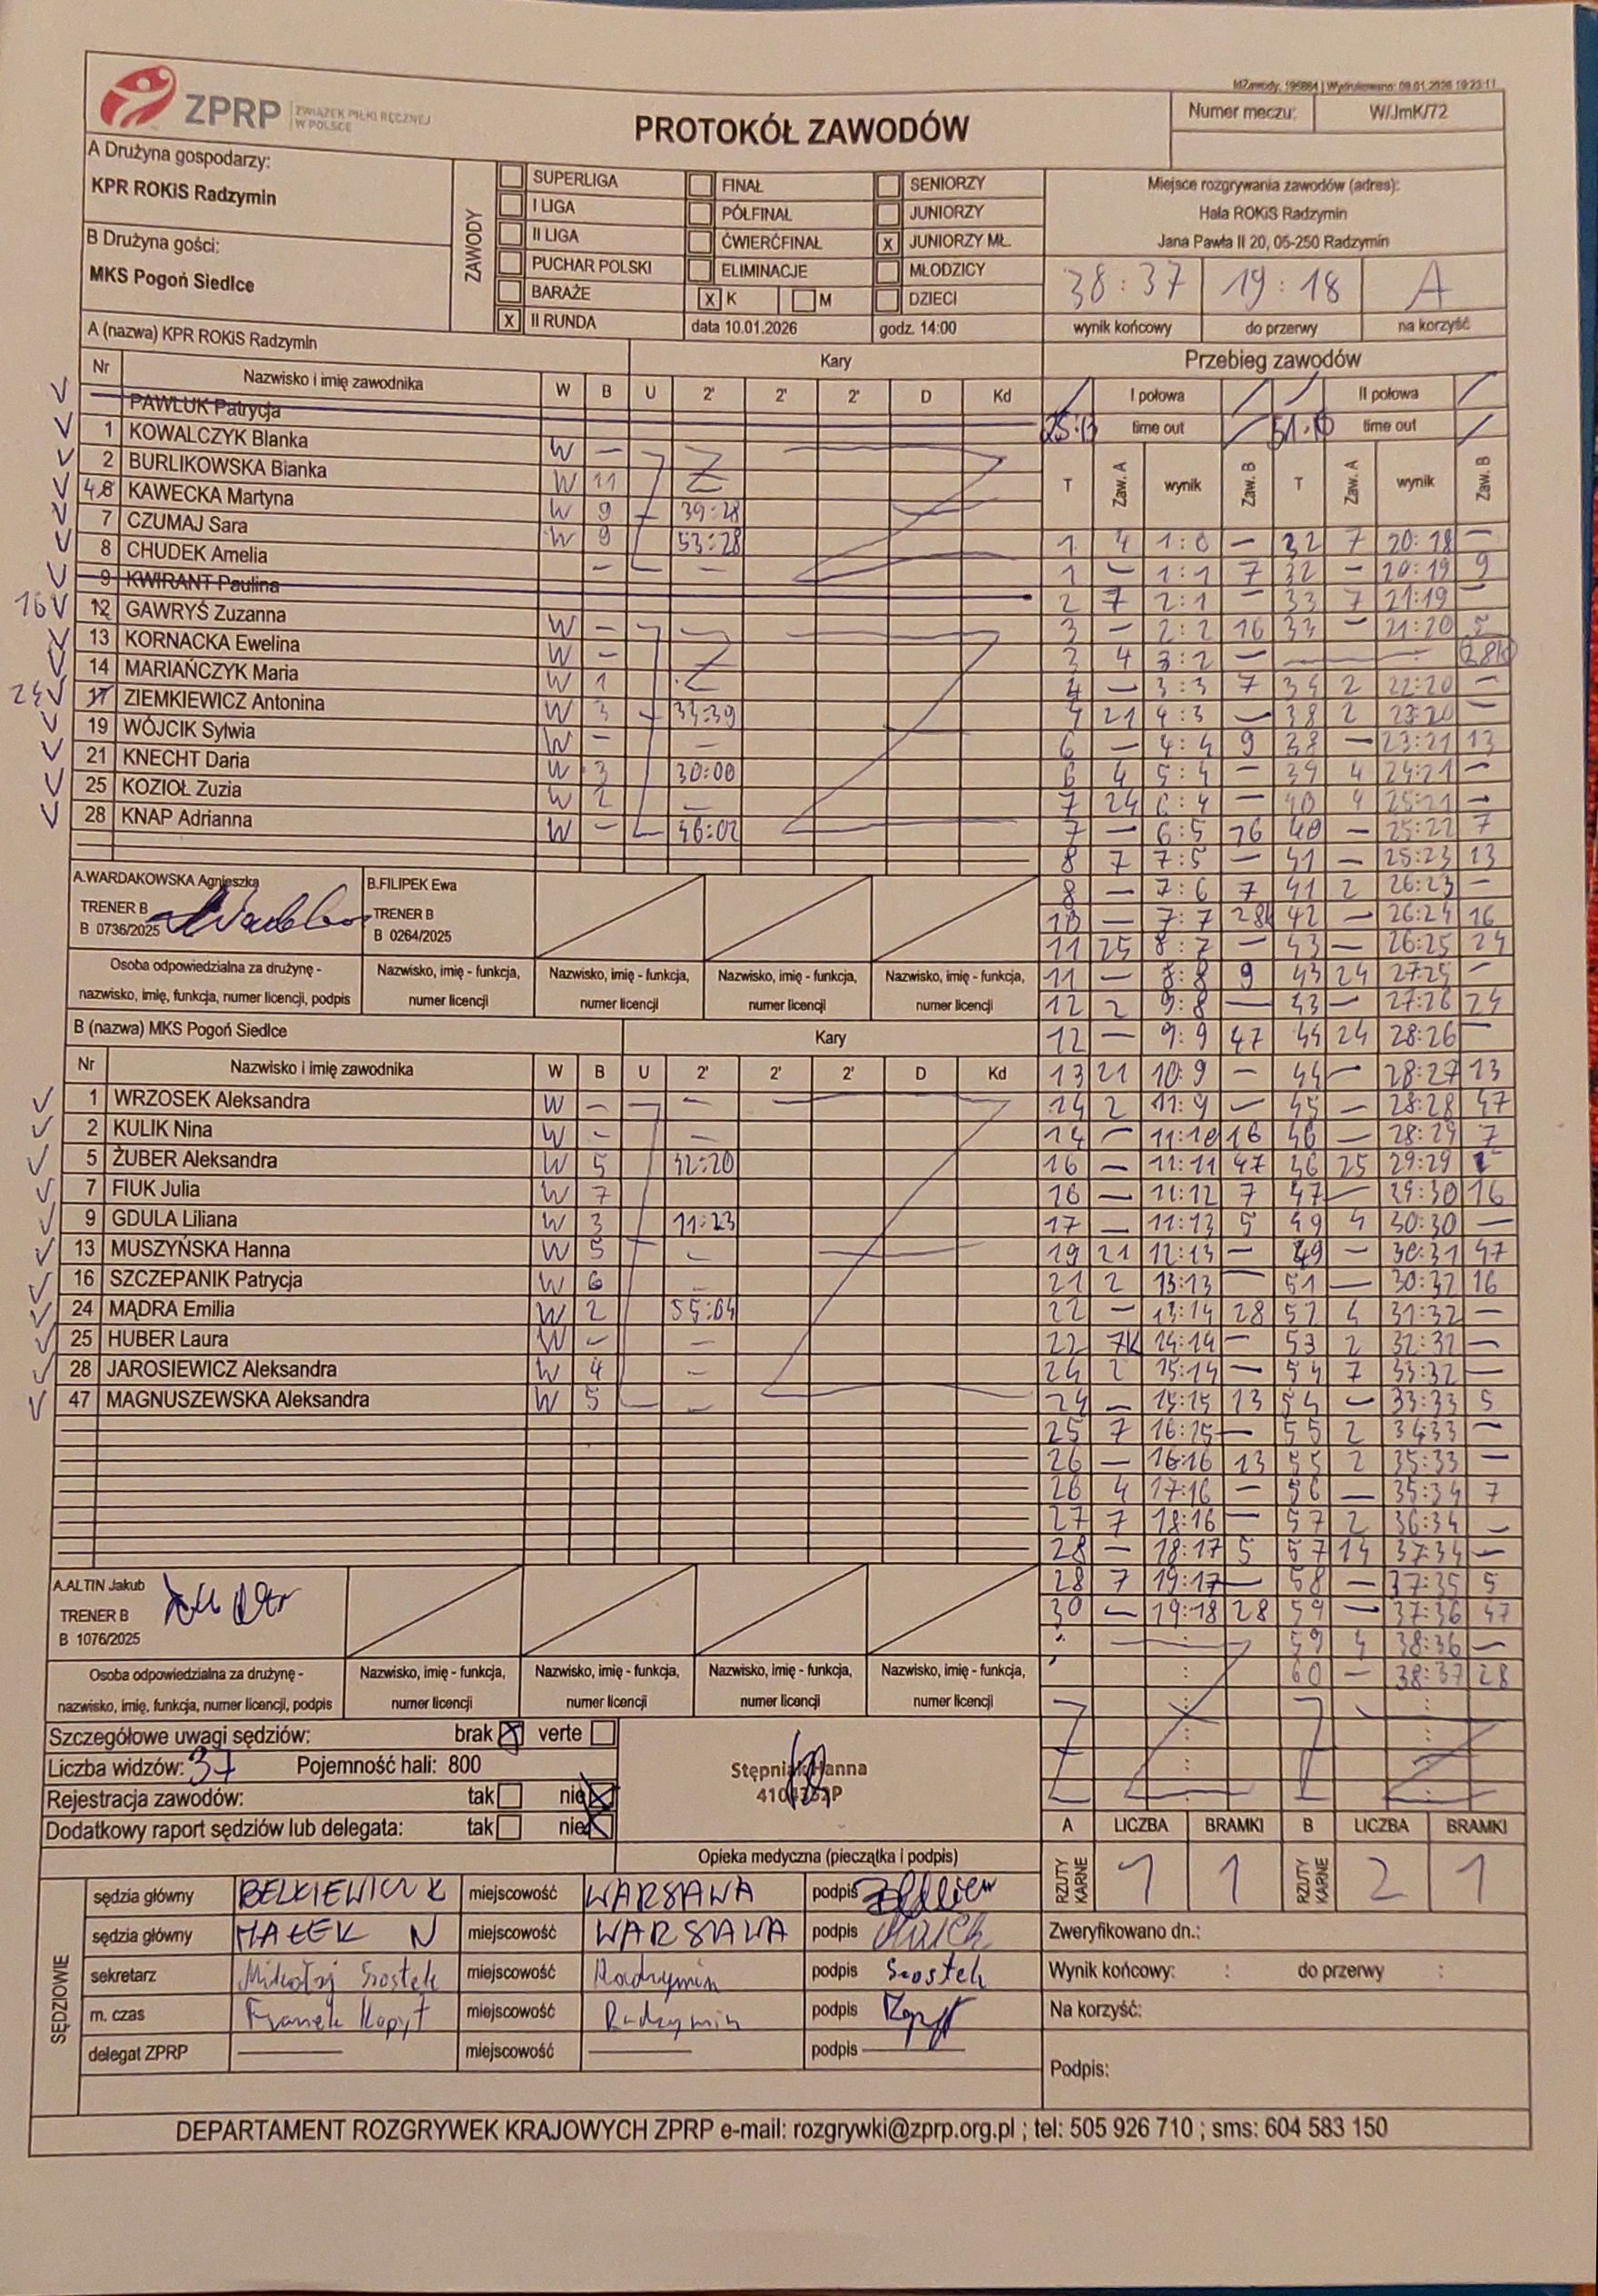 IdZawody: 195864 | Wydrukowano: 09.01.2026 19:23:11
ZPRP ZWIĄZEK PIŁKI RĘCZNEJ W POLSCE
PROTOKÓŁ ZAWODÓW
Numer meczu: W/JmK/72
A Drużyna gospodarzy:
KPR ROKiS Radzymin
B Drużyna gości:
MKS Pogoń Siedlce
ZAWODY
SUPERLIGA FINAŁ SENIORZY
I LIGA PÓŁFINAŁ JUNIORZY
II LIGA ĆWIERĆFINAŁ X JUNIORZY MŁ.
PUCHAR POLSKI ELIMINACJE MŁODZICY
BARAŻE X K M DZIECI
X II RUNDA data 10.01.2026 godz. 14:00
Miejsce rozgrywania zawodów (adres):
Hala ROKiS Radzymin
Jana Pawła II 20, 05-250 Radzymin
38:37 19:18 A
wynik końcowy do przerwy na korzyść
A (nazwa) KPR ROKiS Radzymin Kary
Nr Nazwisko i imię zawodnika W B U 2' 2' 2' D Kd
PAWLUK Patrycja
1 KOWALCZYK Blanka W -
2 BURLIKOWSKA Bianka W 11
KAWECKA Martyna W 9 39:28
7 CZUMAJ Sara W 9 53:28
8 CHUDEK Amelia - -
9 KWIRANT Paulina
16 12 GAWRYŚ Zuzanna W -
13 KORNACKA Ewelina W -
14 MARIAŃCZYK Maria W 1
24 17 ZIEMKIEWICZ Antonina W 3 33:39
19 WÓJCIK Sylwia W - -
21 KNECHT Daria W 3 30:00
25 KOZIOŁ Zuzia W 2 -
28 KNAP Adrianna W - 46:02
A.WARDAKOWSKA Agnieszka B.FILIPEK Ewa
TRENER B TRENER B
B 0736/2025 B 0264/2025
Osoba odpowiedzialna za drużynę - Nazwisko, imię - funkcja, Nazwisko, imię - funkcja, Nazwisko, imię - funkcja, Nazwisko, imię - funkcja,
nazwisko, imię, funkcja, numer licencji, podpis numer licencji numer licencji numer licencji numer licencji
B (nazwa) MKS Pogoń Siedlce Kary
Nr Nazwisko i imię zawodnika W B U 2' 2' 2' D Kd
1 WRZOSEK Aleksandra W - -
2 KULIK Nina W - -
5 ŻUBER Aleksandra W 5 42:20
7 FIUK Julia W 7
9 GDULA Liliana W 3 11:23
13 MUSZYŃSKA Hanna W 5 -
16 SZCZEPANIK Patrycja W 6 -
24 MĄDRA Emilia W 2 55:04
25 HUBER Laura W - -
28 JAROSIEWICZ Aleksandra W 4 -
47 MAGNUSZEWSKA Aleksandra W 5 -
A.ALTIN Jakub
TRENER B
B 1076/2025
Osoba odpowiedzialna za drużynę - Nazwisko, imię - funkcja, Nazwisko, imię - funkcja, Nazwisko, imię - funkcja, Nazwisko, imię - funkcja,
nazwisko, imię, funkcja, numer licencji, podpis numer licencji numer licencji numer licencji numer licencji
Przebieg zawodów
I połowa II połowa
time out time out
T Zaw. A wynik Zaw. B T Zaw. A wynik Zaw. B
1 4 1:0 - 32 7 20:18 -
1 - 1:1 7 32 - 20:19 9
2 7 2:1 - 33 7 21:19 -
3 - 2:2 16 33 - 21:20 5
3 4 3:2 - - - 28k
4 - 3:3 7 34 2 22:20 -
4 21 4:3 - 38 2 23:20 -
6 - 4:4 9 38 - 23:21 13
6 4 5:4 - 39 4 24:21 -
7 24 6:4 - 40 4 25:21 -
7 - 6:5 16 40 - 25:22 7
8 7 7:5 - 41 - 25:23 13
8 - 7:6 7 41 2 26:23 -
10 - 7:7 28k 42 - 26:24 16
11 25 8:7 - 43 - 26:25 24
11 - 8:8 9 43 24 27:25 -
12 2 9:8 - 43 - 27:26 24
12 - 9:9 47 44 24 28:26 -
13 21 10:9 - 44 - 28:27 13
14 2 11:9 - 45 - 28:28 47
14 - 11:10 16 46 - 28:29 7
16 - 11:11 47 46 25 29:29 -
16 - 11:12 7 47 - 29:30 16
17 - 11:13 5 49 4 30:30 -
19 21 12:13 - 49 - 30:31 47
21 2 13:13 - 51 - 30:32 16
22 - 13:14 28 52 4 31:32 -
22 7k 14:14 - 53 2 32:32 -
24 2 15:14 - 54 7 33:32 -
24 - 15:15 13 54 - 33:33 5
25 7 16:15 - 55 2 34:33 -
26 - 16:16 13 55 2 35:33 -
26 4 17:16 - 56 - 35:34 7
27 7 18:16 - 57 2 36:34 -
28 - 18:17 5 57 14 37:34 -
28 7 19:17 - 58 - 37:35 5
30 - 19:18 28 59 - 37:36 47
59 4 38:36 -
60 - 38:37 28
Szczegółowe uwagi sędziów: brak X verte
Liczba widzów: 37 Pojemność hali: 800
Rejestracja zawodów: tak nie X
Dodatkowy raport sędziów lub delegata: tak nie X
Stępniak Hanna
Opieka medyczna (pieczątka i podpis)
A LICZBA BRAMKI B LICZBA BRAMKI
RZUTY KARNE 1 1 RZUTY KARNE 2 1
SĘDZIOWIE
sędzia główny BELKIEWICZ K miejscowość WARSAWA podpis
sędzia główny MAŁEK N miejscowość WARSZAWA podpis
sekretarz Mikołaj Szostek miejscowość Radzymin podpis Szostek
m. czas Franek Kopyt miejscowość Radzymin podpis Kopyt
delegat ZPRP miejscowość podpis
Zweryfikowano dn.:
Wynik końcowy: : do przerwy :
Na korzyść:
Podpis:
DEPARTAMENT ROZGRYWEK KRAJOWYCH ZPRP e-mail: rozgrywki@zprp.org.pl ; tel: 505 926 710 ; sms: 604 583 150